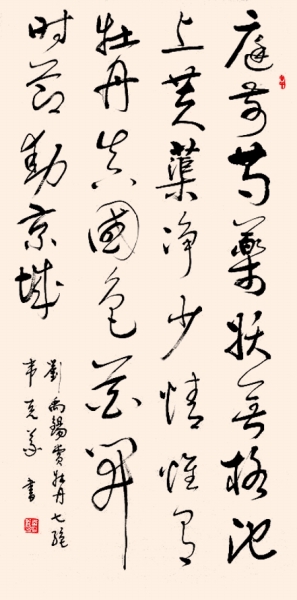 庭前芍藥妖無格池
上芙蕖净少情惟有
牡丹真國色花開
时節動京城
劉禹錫賞牡丹七絕
韦克义書